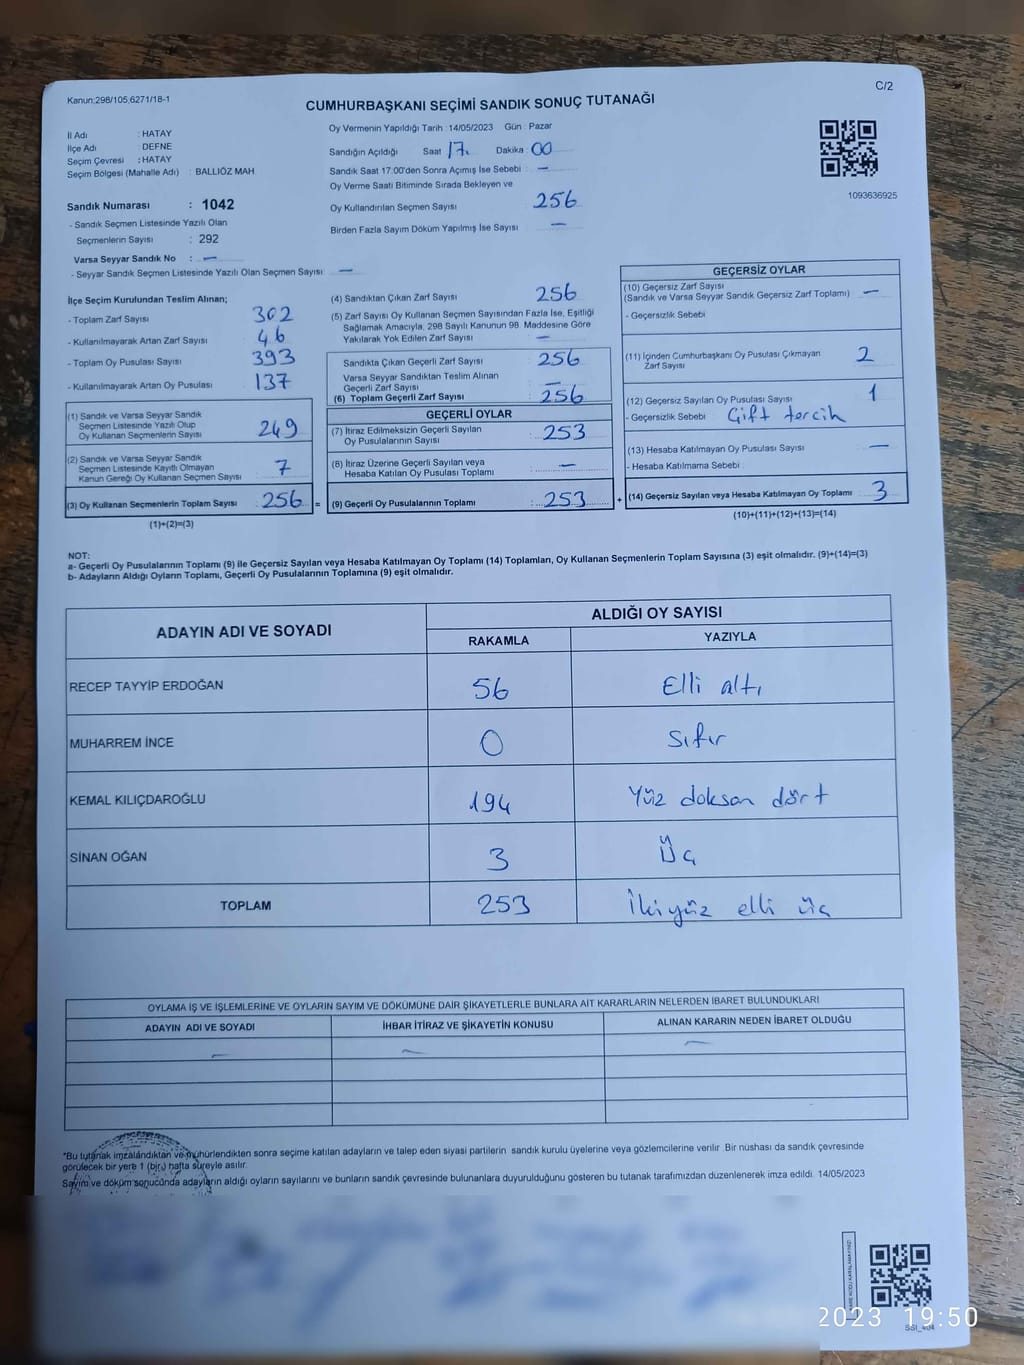 Kanun;298/105;6271/18-1
C/2
CUMHURBAŞKANI SEÇİMİ SANDIK SONUÇ TUTANAĞI
İl Adı : HATAY
İlçe Adı : DEFNE
Seçim Çevresi : HATAY
Seçim Bölgesi (Mahalle Adı) : BALLIÖZ MAH
Oy Vermenin Yapıldığı Tarih : 14/05/2023 Gün : Pazar
Sandığın Açıldığı Saat 17. Dakika : 00
Sandık Saat 17.00'den Sonra Açımış İse Sebebi : —
Oy Verme Saati Bitiminde Sırada Bekleyen ve
Oy Kullandırılan Seçmen Sayısı 256
Birden Fazla Sayım Döküm Yapılmış İse Sayısı —
1093636925
Sandık Numarası : 1042
- Sandık Seçmen Listesinde Yazılı Olan
Seçmenlerin Sayısı : 292
Varsa Seyyar Sandık No : —
- Seyyar Sandık Seçmen Listesinde Yazılı Olan Seçmen Sayısı : —
İlçe Seçim Kurulundan Teslim Alınan;
- Toplam Zarf Sayısı 302
- Kullanılmayarak Artan Zarf Sayısı 46
- Toplam Oy Pusulası Sayısı 393
- Kullanılmayarak Artan Oy Pusulası 137
(1) Sandık ve Varsa Seyyar Sandık
Seçmen Listesinde Yazılı Olup
Oy Kullanan Seçmenlerin Sayısı : 249
(2) Sandık ve Varsa Seyyar Sandık
Seçmen Listesinde Kayıtlı Olmayan
Kanun Gereği Oy Kullanan Seçmen Sayısı : 7
(3) Oy Kullanan Seçmenlerin Toplam Sayısı : 256 =
(1)+(2)=(3)
(4) Sandıktan Çıkan Zarf Sayısı 256
(5) Zarf Sayısı Oy Kullanan Seçmen Sayısından Fazla İse, Eşitliği
Sağlamak Amacıyla, 298 Sayılı Kanunun 98. Maddesine Göre
Yakılarak Yok Edilen Zarf Sayısı —
Sandıkta Çıkan Geçerli Zarf Sayısı 256
Varsa Seyyar Sandıktan Teslim Alınan
Geçerli Zarf Sayısı —
(6) Toplam Geçerli Zarf Sayısı 256
GEÇERLİ OYLAR
(7) İtiraz Edilmeksizin Geçerli Sayılan
Oy Pusulalarının Sayısı : 253
(8) İtiraz Üzerine Geçerli Sayılan veya
Hesaba Katılan Oy Pusulası Toplamı : —
(9) Geçerli Oy Pusulalarının Toplamı : 253 +
GEÇERSİZ OYLAR
(10) Geçersiz Zarf Sayısı
(Sandık ve Varsa Seyyar Sandık Geçersiz Zarf Toplamı) —
- Geçersizlik Sebebi
(11) İçinden Cumhurbaşkanı Oy Pusulası Çıkmayan
Zarf Sayısı 2
(12) Geçersiz Sayılan Oy Pusulası Sayısı 1
- Geçersizlik Sebebi Çift tercih
(13) Hesaba Katılmayan Oy Pusulası Sayısı —
- Hesaba Katılmama Sebebi
(14) Geçersiz Sayılan veya Hesaba Katılmayan Oy Toplamı 3
(10)+(11)+(12)+(13)=(14)
NOT:
a- Geçerli Oy Pusulalarının Toplamı (9) ile Geçersiz Sayılan veya Hesaba Katılmayan Oy Toplamı (14) Toplamları, Oy Kullanan Seçmenlerin Toplam Sayısına (3) eşit olmalıdır. (9)+(14)=(3)
b- Adayların Aldığı Oyların Toplamı, Geçerli Oy Pusulalarının Toplamına (9) eşit olmalıdır.
ADAYIN ADI VE SOYADI
ALDIĞI OY SAYISI
RAKAMLA YAZIYLA
RECEP TAYYİP ERDOĞAN 56 Elli altı
MUHARREM İNCE 0 Sıfır
KEMAL KILIÇDAROĞLU 194 Yüz doksan dört
SİNAN OĞAN 3 Üç
TOPLAM 253 İkiyüz elli üç
OYLAMA İŞ VE İŞLEMLERİNE VE OYLARIN SAYIM VE DÖKÜMÜNE DAİR ŞİKAYETLERLE BUNLARA AİT KARARLARIN NELERDEN İBARET BULUNDUKLARI
ADAYIN ADI VE SOYADI İHBAR İTİRAZ VE ŞİKAYETİN KONUSU ALINAN KARARIN NEDEN İBARET OLDUĞU
— — —
*Bu tutanak imzalandıktan ve mühürlendikten sonra seçime katılan adayların ve talep eden siyasi partilerin sandık kurulu üyelerine veya gözlemcilerine verilir. Bir nüshası da sandık çevresinde
görülecek bir yere 1 (bir) hafta süreyle asılır.
Sayım ve döküm sonucunda adayların aldığı oyların sayılarını ve bunların sandık çevresinde bulunanlara duyurulduğunu gösteren bu tutanak tarafımızdan düzenlenerek imza edildi. 14/05/2023
2023 19:50